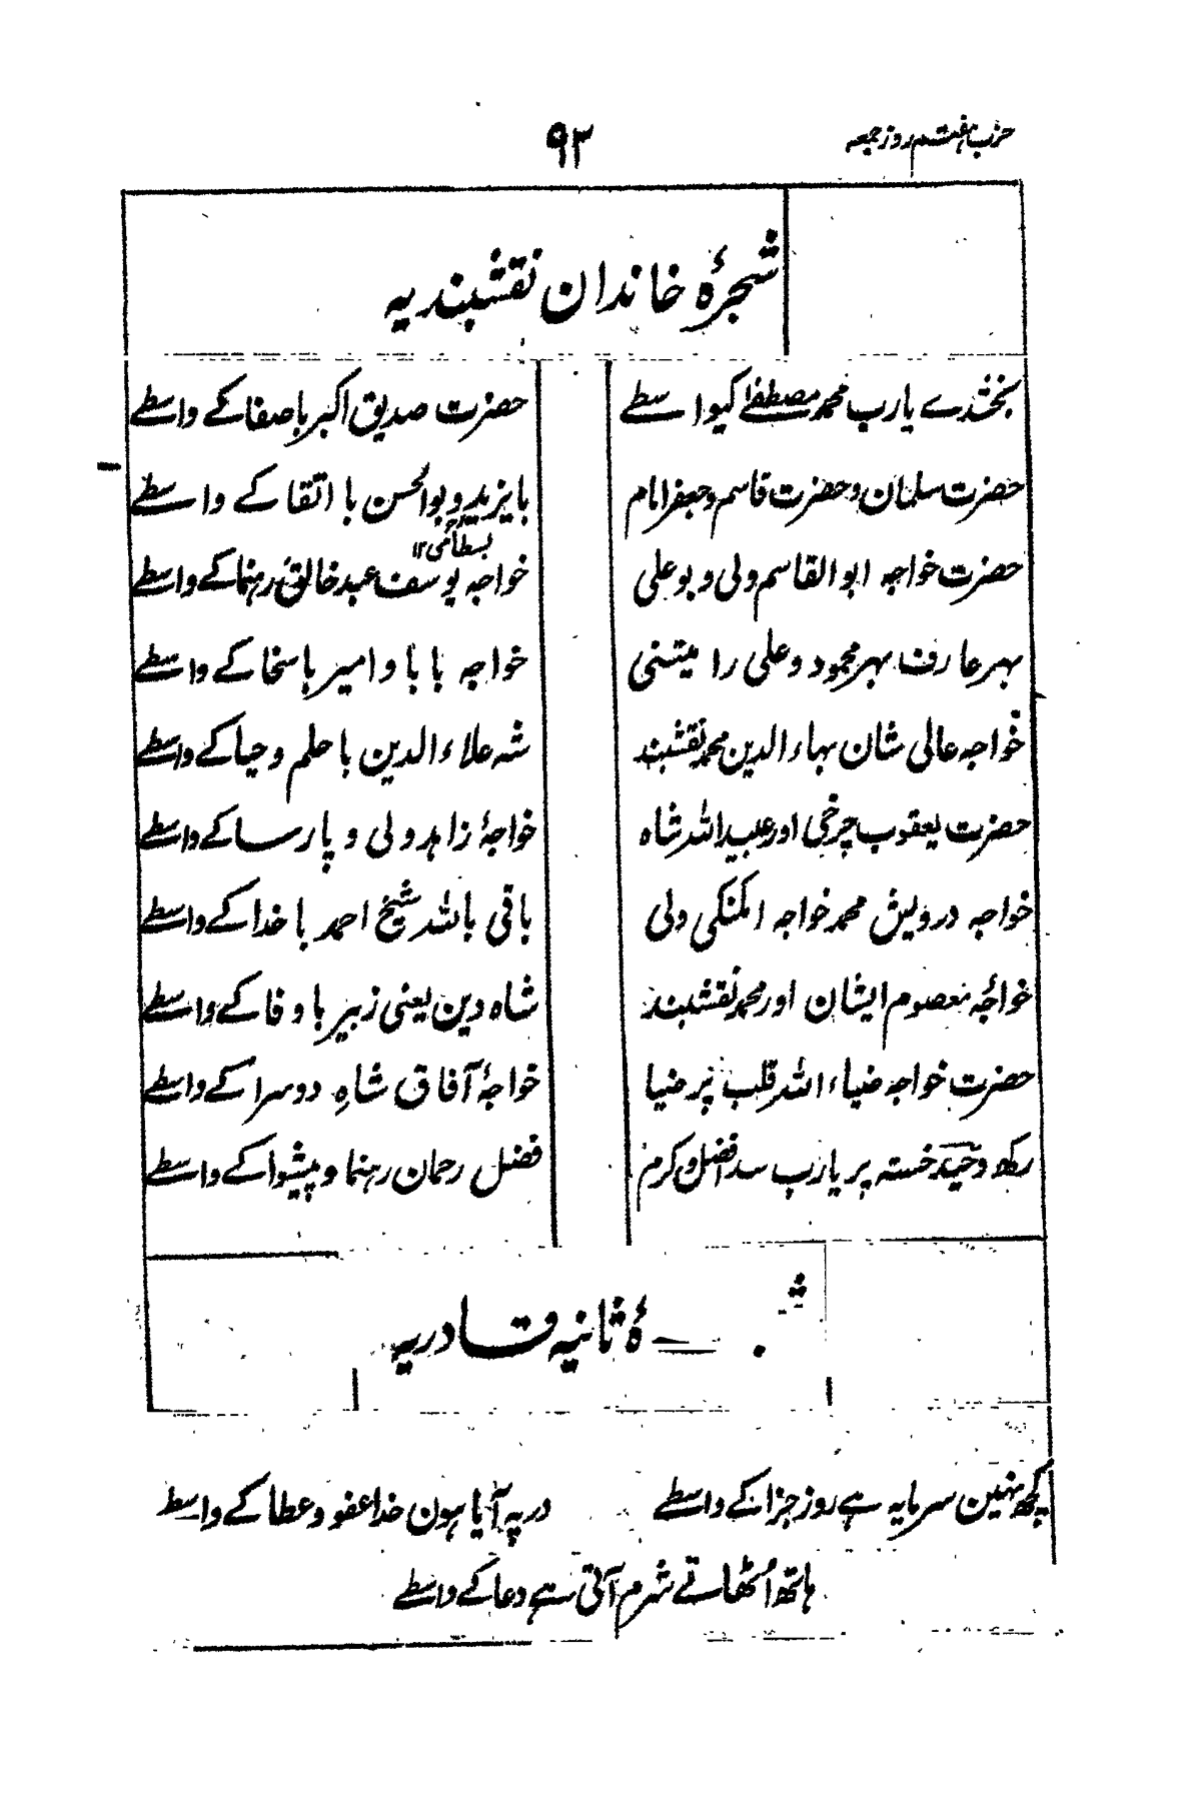 حزب ہفتم روز جمعہ
۹۳
شجرۂ خاندان نقشبندیہ
بخشدے یارب محمد مصطفےٰ کیواسطے
حضرت صدیق اکبر باصفا کے واسطے
حضرت سلمان و حضرت قاسم و جعفر امام
بایزید و بوالحسن با اتقا کے واسطے
بسطامی ۱۲
حضرت خواجہ ابوالقاسم ولی و بوعلی
خواجہ یوسف عبد خالق رہنما کے واسطے
بہر عارف بہر محمود و علی رامیتنی
خواجہ بابا و امیر باسخا کے واسطے
خواجہ عالی شان بہاء الدین محمد نقشبند
شہ علاء الدین با حلم و حیا کے واسطے
حضرت یعقوب چرخی اور عبید اللہ شاہ
خواجۂ زاہد ولی و پارسا کے واسطے
خواجہ درویش محمد خواجہ امکنکی ولی
باقی باللہ شیخ احمد باخدا کے واسطے
خواجۂ معصوم ایشان اور محمد نقشبند
شاہ دین یعنی زبیر باوفا کے واسطے
حضرت خواجہ ضیاء اللہ قلب پر ضیا
خواجۂ آفاق شاہِ دوسرا کے واسطے
رکھ وحید خستہ پر یارب سدا فضل و کرم
فضل رحمان رہنما و پیشوا کے واسطے
ۂ ثانیہ قادریہ
کچھ نہین سرمایہ ہے روز جزا کے واسطے
در پہ آیا ہون خدا عفو و عطا کے واسطے
ہاتھ اُٹھاتے شرم آتی ہے دعا کے واسطے